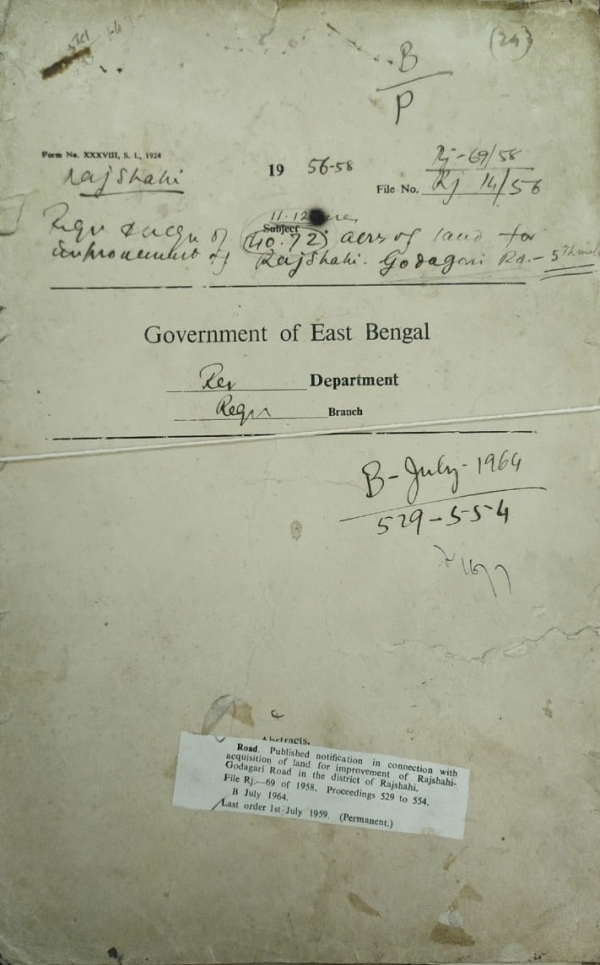 (24)
B
P
Form No. XXXVIII, S. I., 1924
Rajshahi
19 56-58
Rj-69/58
File No. Rj 14/56
11.12 acres
Subject
Requ & acqu of 40.72 acrs of land for
improvement of Rajshahi. Godagari Rd.- 5th mile
Government of East Bengal
Rev Department
Requ Branch
B-July-1964
529-554
Abstracts.
Road. Published notification in connection with
acquisition of land for improvement of Rajshahi-
Godagari Road in the district of Rajshahi.
File Rj.—69 of 1958. Proceedings 529 to 554.
B July 1964.
Last order 1st July 1959. (Permanent.)